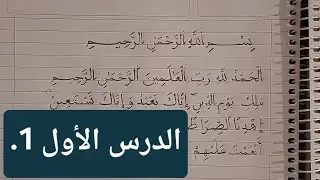 بِسْمِ اللَّهِ الرَّحْمَٰنِ الرَّحِيمِ
الْحَمْدُ لِلَّهِ رَبِّ الْعَٰلَمِينَ الرَّحْمَٰنِ الرَّحِيمِ
مَٰلِكِ يَوْمِ الدِّينِ إِيَّاكَ نَعْبُدُ وَإِيَّاكَ نَسْتَعِينُ
اهْدِنَا الصِّرَٰطَ
أَنْعَمْتَ عَلَيْهِمْ
الدرس الأول 1.